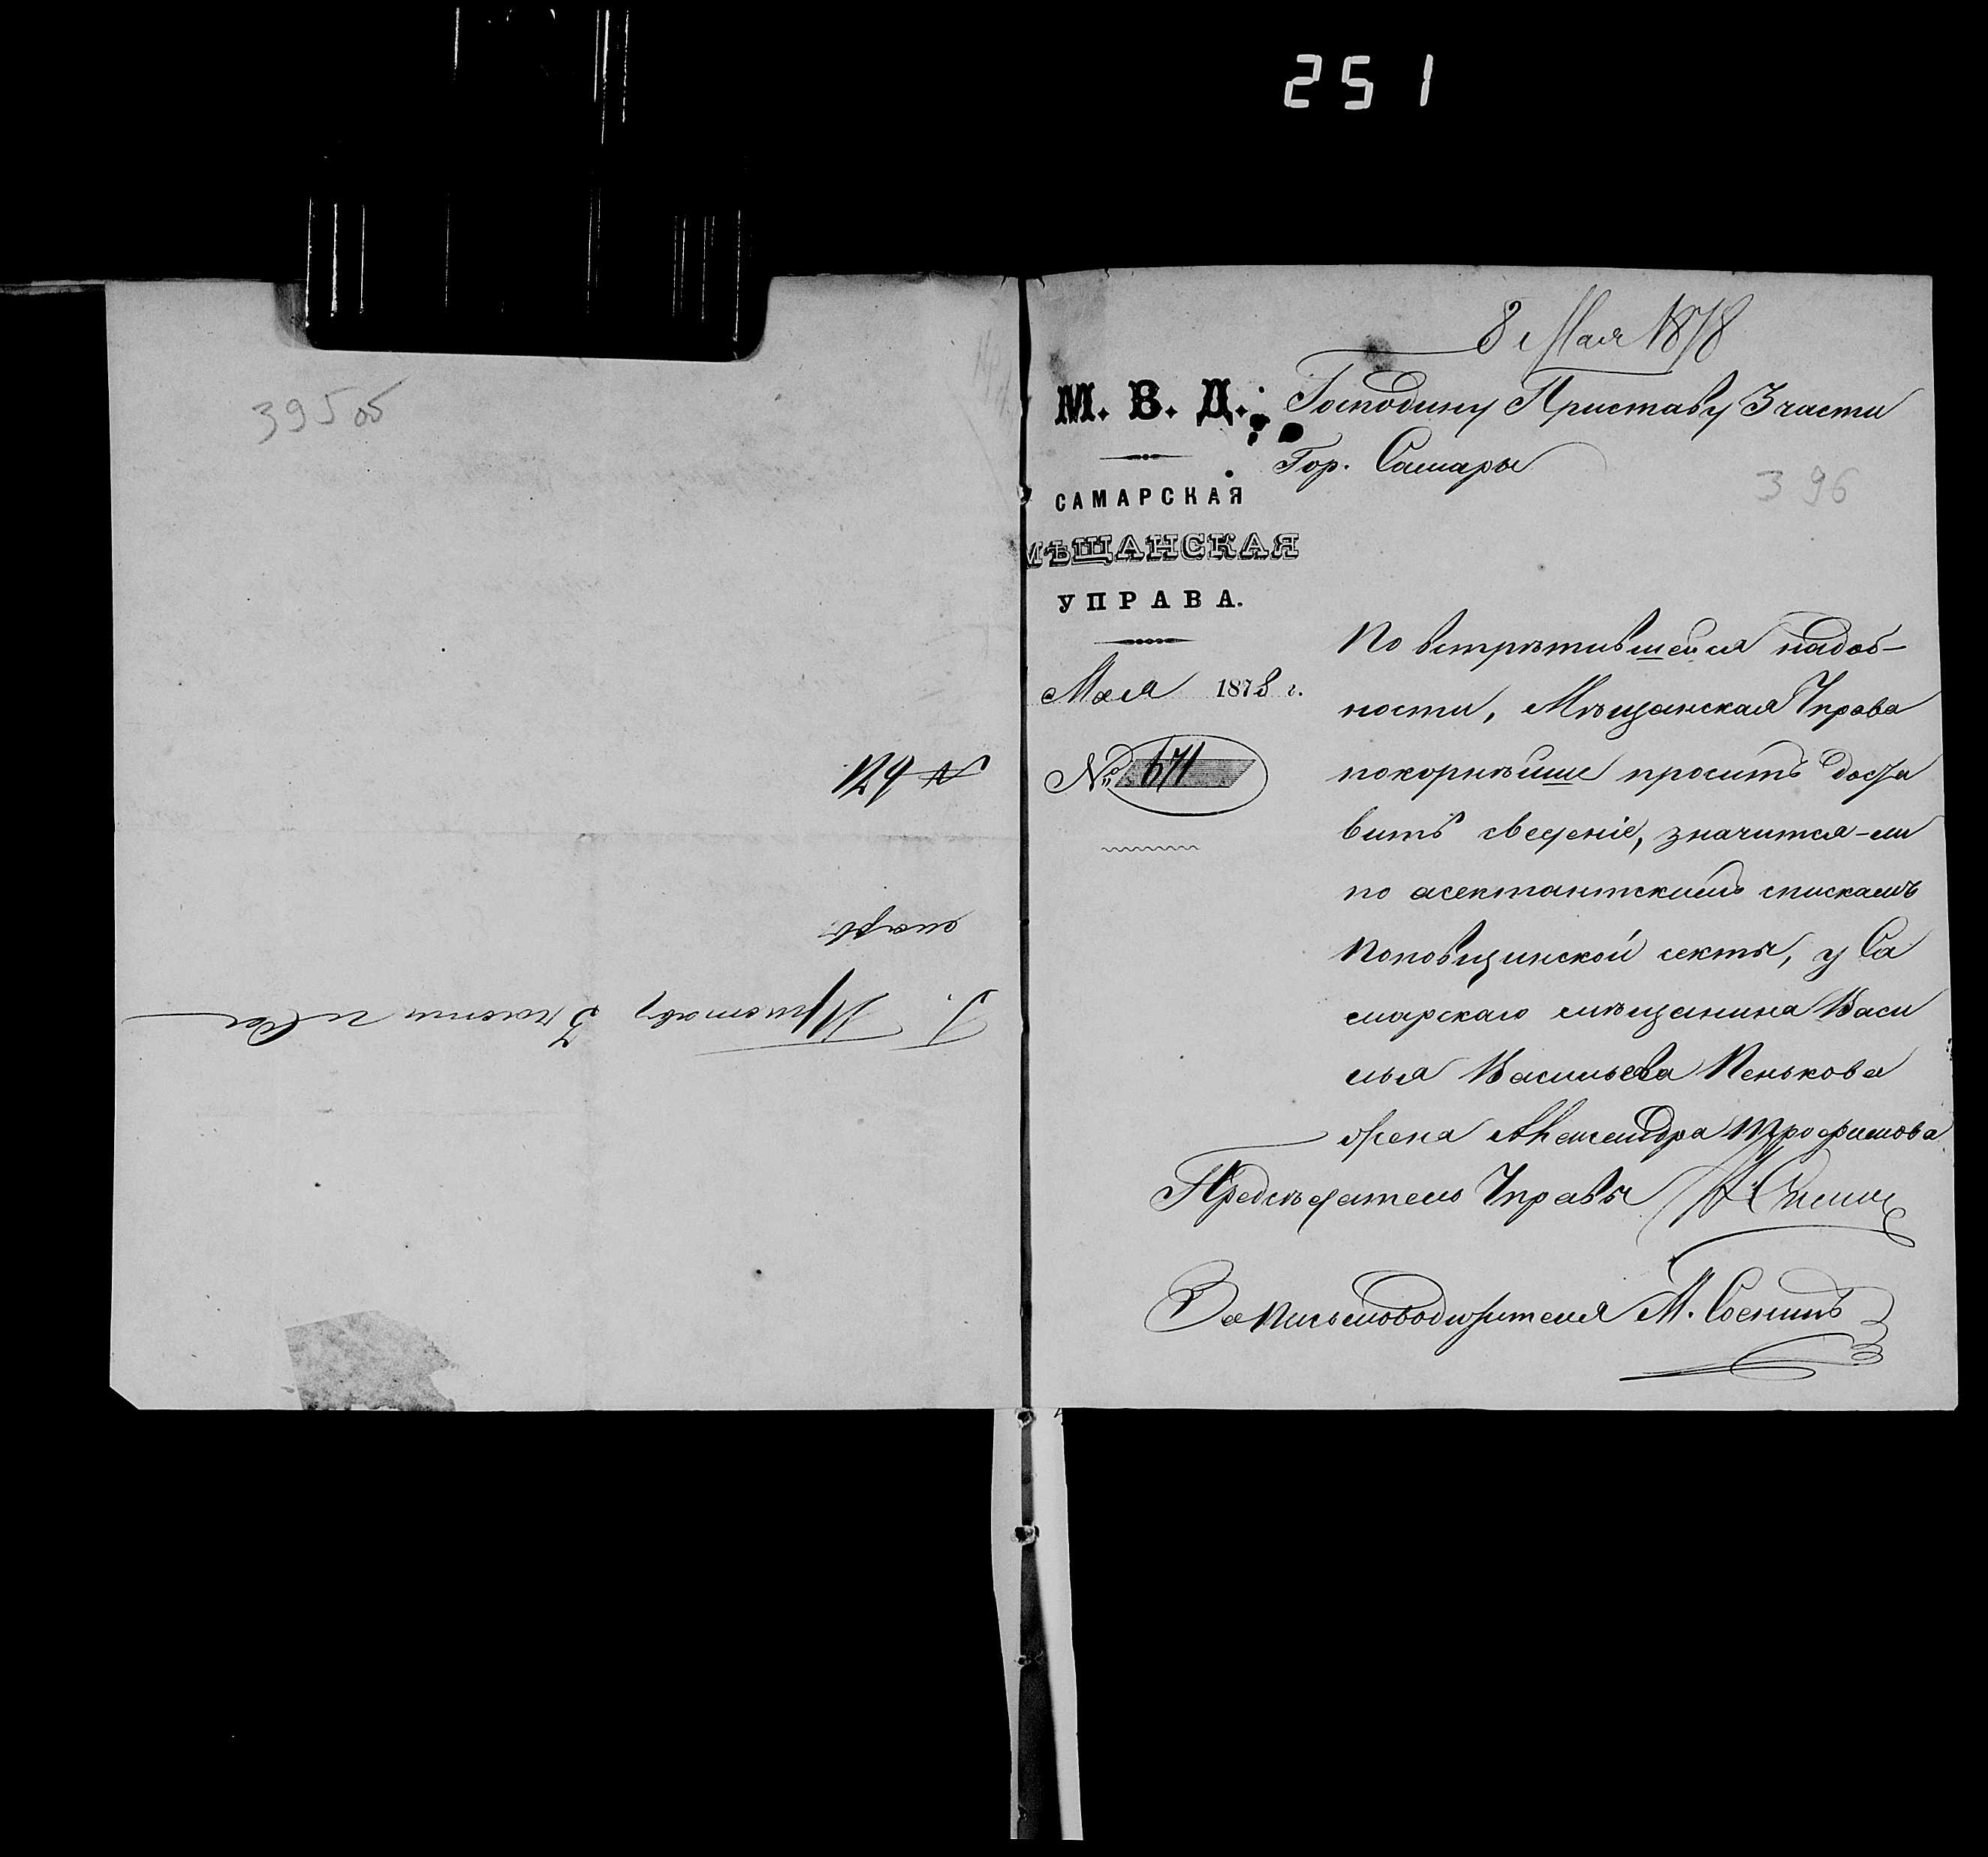 251
395 об
№ 671
Г. Приставу 3 части г. Са
мары
8 Мая 1878
М. В. Д.
Господину Приставу 3 части
Гор. Самары
396
САМАРСКАЯ
МѢЩАНСКАЯ
УПРАВА.
Мая 1878 г.
№ 671
По встрѣтившейся надоб-
ности, Мѣщанская Управа
покорнѣйше проситъ доста
вить сведеніе, значится-ли
по сектантскимъ спискамъ
Поповщинской секты, у Са
марскаго мѣщанина Васи
лья Васильева Пенькова
жена Александра Трофимова
Предсѣдатель Управы
За Письмоводителя М.